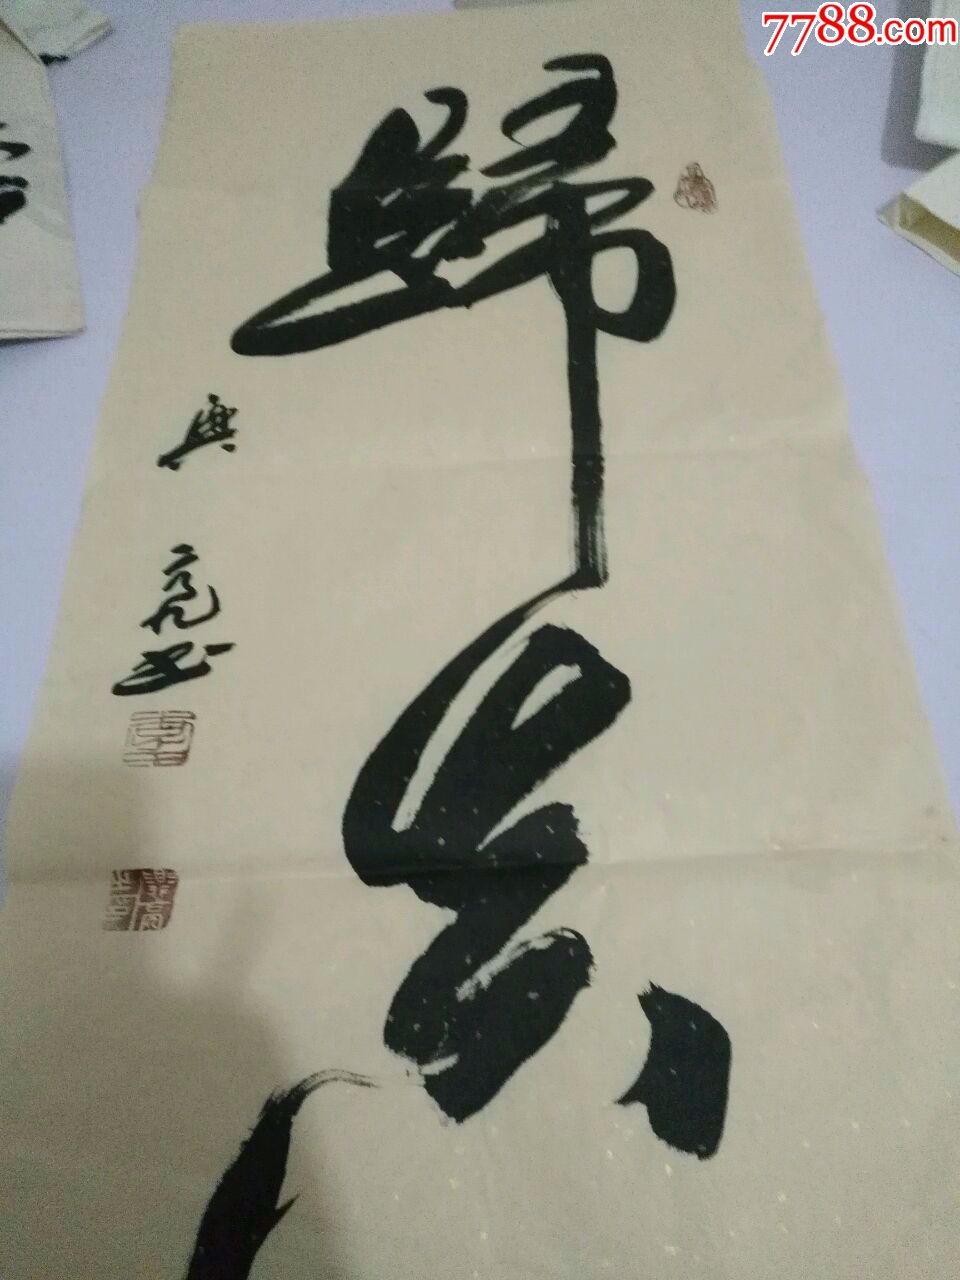 7788.com
歸真
興亮书